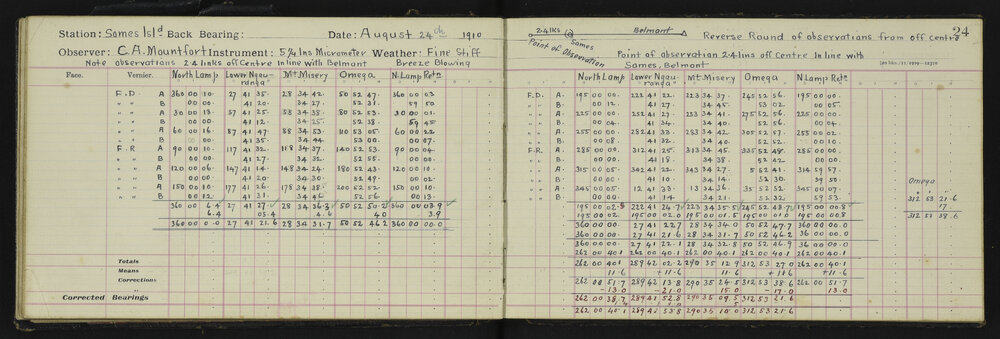 Station: Somes Isld Back Bearing: Date: August 24th 1910
Observer: C.A. Mountfort Instrument: 5¼ Ins Micrometer Weather: Fine Stiff
Note observations 2.4 links off Centre in line with Belmont Breeze Blowing
Face. Vernier. North Lamp Lower Ngauranga Mt Misery Omega N. Lamp Retn
F.D. A 360 00 10. 27 41 35. 28 34 42. 50 52 47. 360 00 03
" " B 00 00. 41 20. 34 27. 52 31. 59 50
" " A 30 00 13. 57 41 25. 58 34 38. 80 52 53. 30 00 01
" " B 00 00. 41 12. 34 25. 52 38. 59 45
" " A 60 00 16. 87 41 47. 88 34 53. 110 53 05. 60 00 22
" " B 00 00. 41 35. 34 44 53 00. 00 07.
F.R A 90 00 10. 117 41 32. 118 34 37. 140 52 53. 90 00 04
" " B 00 00. 41 27. 34 32. 52 55. 00 00.
" " A 120 00 06. 147 41 14. 148 34 24. 180 52 43. 120 00 10.
" " B 00 00. 41 20. 34 30. 52 49. 00 02.
" " A 150 00 10. 177 41 26. 178 34 38. 200 52 52. 150 00 10.
" " B 00 12. 41 31. 34 46 52 56. 00 13.
360 00 6.4 27 41 27. 28 34 36.3 50 52 50.2 360 00 03.9
6.4 05.4 4.6 40 3.9
360 00 0.0 27 41 21.6 28 34 31.7 50 52 46.2 360 00 00.0
Totals
Means
Corrections
Corrected Bearings
2.4 lks @ Somes
Point of Observation
Belmont
Reverse Round of observations from off centre
24
Point of observation 2.4 links off Centre In line with
Somes, Belmont
North Lamp Lower Ngauranga Mt Misery Omega N Lamp Retn
F.D. A. 195 00 00. 222 41 22. 223 34 37. 245 52 56. 195 00 00.
" " B. 00 12. 41 27. 34 45. 53 02 00 05.
" " A. 225 00 00. 252 41 27. 253 34 41. 275 52 56. 225 00 00.
" " B. 00 04. 41 34. 34 40. 52 56. 00 04.
" " A. 255 00 00. 282 41 33. 283 34 42. 305 52 57. 255 00 02.
" " B. 00 08. 41 32. 34 40. 52 52. 00 10.
F.R A. 285 00 00. 312 41 25. 313 34 45. 335 52 48. 285 00 00.
" " B. 00 00. 41 18. 34 38. 52 42 00 00.
" " A. 315 00 05. 342 41 22. 343 34 27. 5 52 41. 314 59 57.
" " B. 00 00. 41 10. 34 14. 52 30. 39 50.
" " A. 345 00 05. 12 41 23. 13 34 36. 35 52 32. 345 00 07.
" " B. 00 00. 41 14. 34 21. 52 32. 59 53.
Omega
312 53 21.6
17
312 53 38.6
195 00 02.8 222 41 24.7 223 34 35.5 245 52 48.7 195 00 00.8
195 00 02. 195 00 02.0 195 00 01.5 195 00 01.0 195 00 00.8
360 00 00. 27 41 22.7 28 34 34.0 50 52 47.7 360 00 00.
360 00 00. 27 41 21.6 28 34 31.7 50 52 46.2 36 00 00.0
360 00 00. 27 41 22.1 28 34 32.8 50 52 46.9 36 00 00.0
262 00 40.1 262 00 40.1 262 00 40.1 262 00 40.1 262 00 40.1
262 00 40.1 289 42 02.2 290 35 12.9 312 53 27.0 262 00 40.1
11.6 +11.6 11.6 +11.6 +11.6
262 00 51.7 289 42 13.8 290 35 24.5 312 53 38.6 262 00 51.7
-13.0 -21.0 15.0 -17.0 13.0
262 00 38.7 289 41 52.8 290 35 09.5 312 53 21.6
262 00 40.1 289 41 53.8 290 35 10.0 312 53 21.6